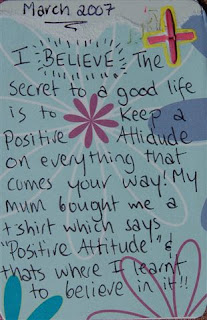 March 2007
I BELIEVE The
secret to a good life
is to keep a
Positive Attidude
on everything that
cumes your way! My
mum bought me a
t-shirt which says
"Positive Attitude" &
thats where I learnt
to believe in it!!